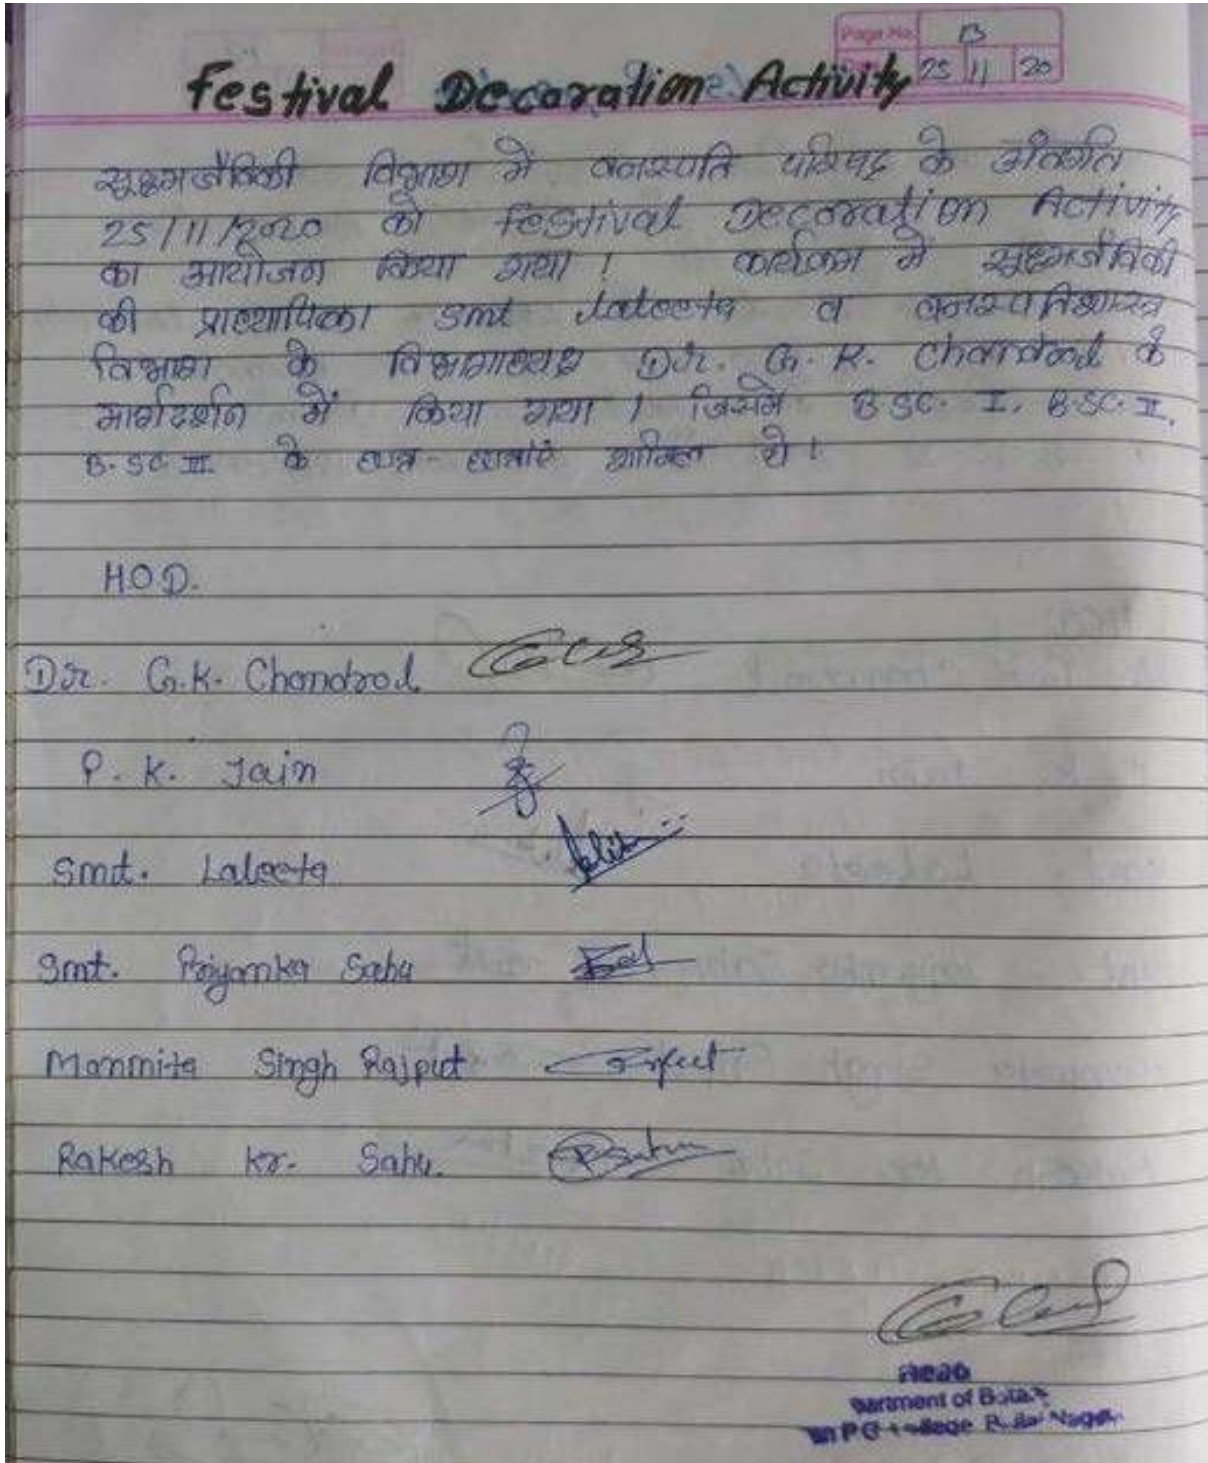 Page No. B
25 11 20
Festival Decoration Activity
सूक्ष्मजैविकी विभाग में वनस्पति परिषद के अंतर्गत
25/11/2020 को Festival Decoration Activity
का आयोजन किया गया। कार्यक्रम में सूक्ष्मजैविकी
की प्राध्यापिका smt laleeta व वनस्पतिशास्त्र
विभाग के विभागाध्यक्ष Dr. G. K. Chandrol के
मार्गदर्शन में किया गया। जिसमें B.SC. I, B.SC. II,
B.SC III के छात्र-छात्राएं शामिल थे।
H.O.D.
Dr. G.K. Chandrol
P. K. Jain
Smt. Laleeta
Smt. Priyanka Sahu
Manmita Singh Rajput
Rakesh Kr. Sahu.
Head
partment of Bota
P G College